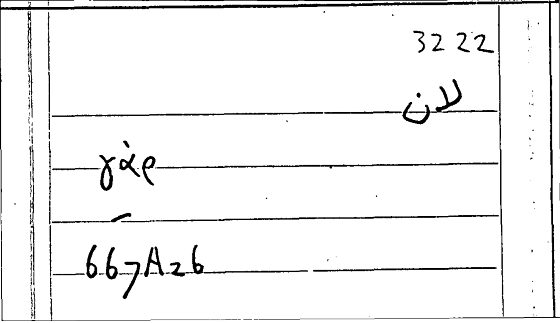 3222
لان
γὰρ
667A26